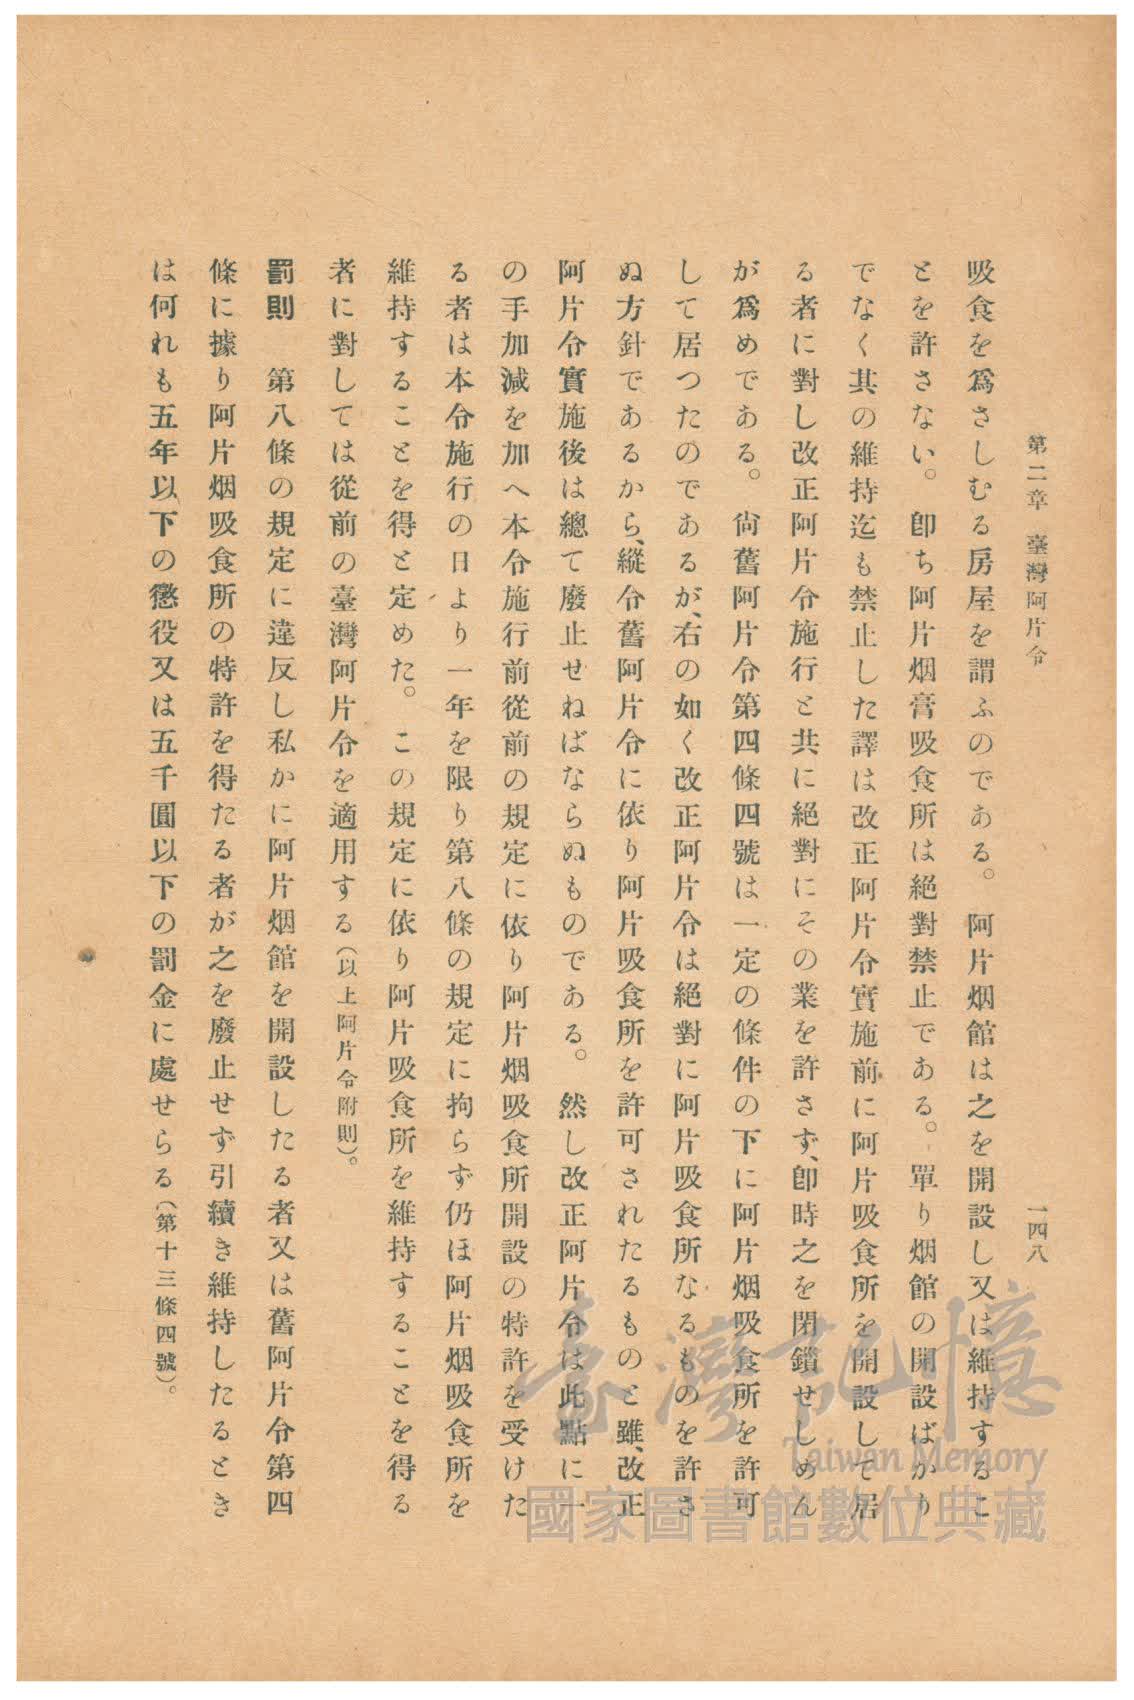 第二章 臺灣阿片令 一四八
吸食を爲さしむる房屋を謂ふのである。 阿片烟館は之を開設し又は維持するこ
とを許さない。 卽ち阿片烟膏吸食所は絕對禁止である。單り烟館の開設ばかり
でなく其の維持迄も禁止した譯は改正阿片令實施前に阿片吸食所を開設して居
る者に對し改正阿片令施行と共に絕對にその業を許さず、卽時之を閉鎖せしめん
が爲めである。 尙舊阿片令第四條四號は一定の條件の下に阿片烟吸食所を許可
して居つたのであるが、右の如く改正阿片令は絕對に阿片吸食所なるものを許さ
ぬ方針であるから、縱令舊阿片令に依り阿片吸食所を許可されたるものと雖、改正
阿片令實施後は總て廢止せねばならぬものである。 然し改正阿片令は此點に一
の手加減を加へ本令施行前從前の規定に依り阿片烟吸食所開設の特許を受けた
る者は本令施行の日より一年を限り第八條の規定に拘らず仍ほ阿片烟吸食所を
維持することを得と定めた。 この規定に依り阿片吸食所を維持することを得る
者に對しては從前の臺灣阿片令を適用する(以上阿片令附則)。
罰則 第八條の規定に違反し私かに阿片烟館を開設したる者又は舊阿片令第四
條に據り阿片烟吸食所の特許を得たる者が之を廢止せず引續き維持したるとき
は何れも五年以下の懲役又は五千圓以下の罰金に處せらる(第十三條四號)。
臺灣記憶
Taiwan Memory
國家圖書館數位典藏